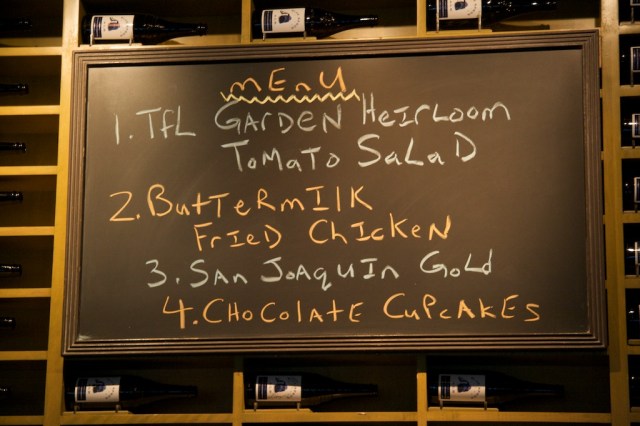 MENU
1. TFL GARDEN HEIRLOOM
TOMATO SALAD
2. BUTTERMILK
FRIED CHICKEN
3. SAN JOAQUIN GOLD
4. CHOCOLATE CUPCAKES